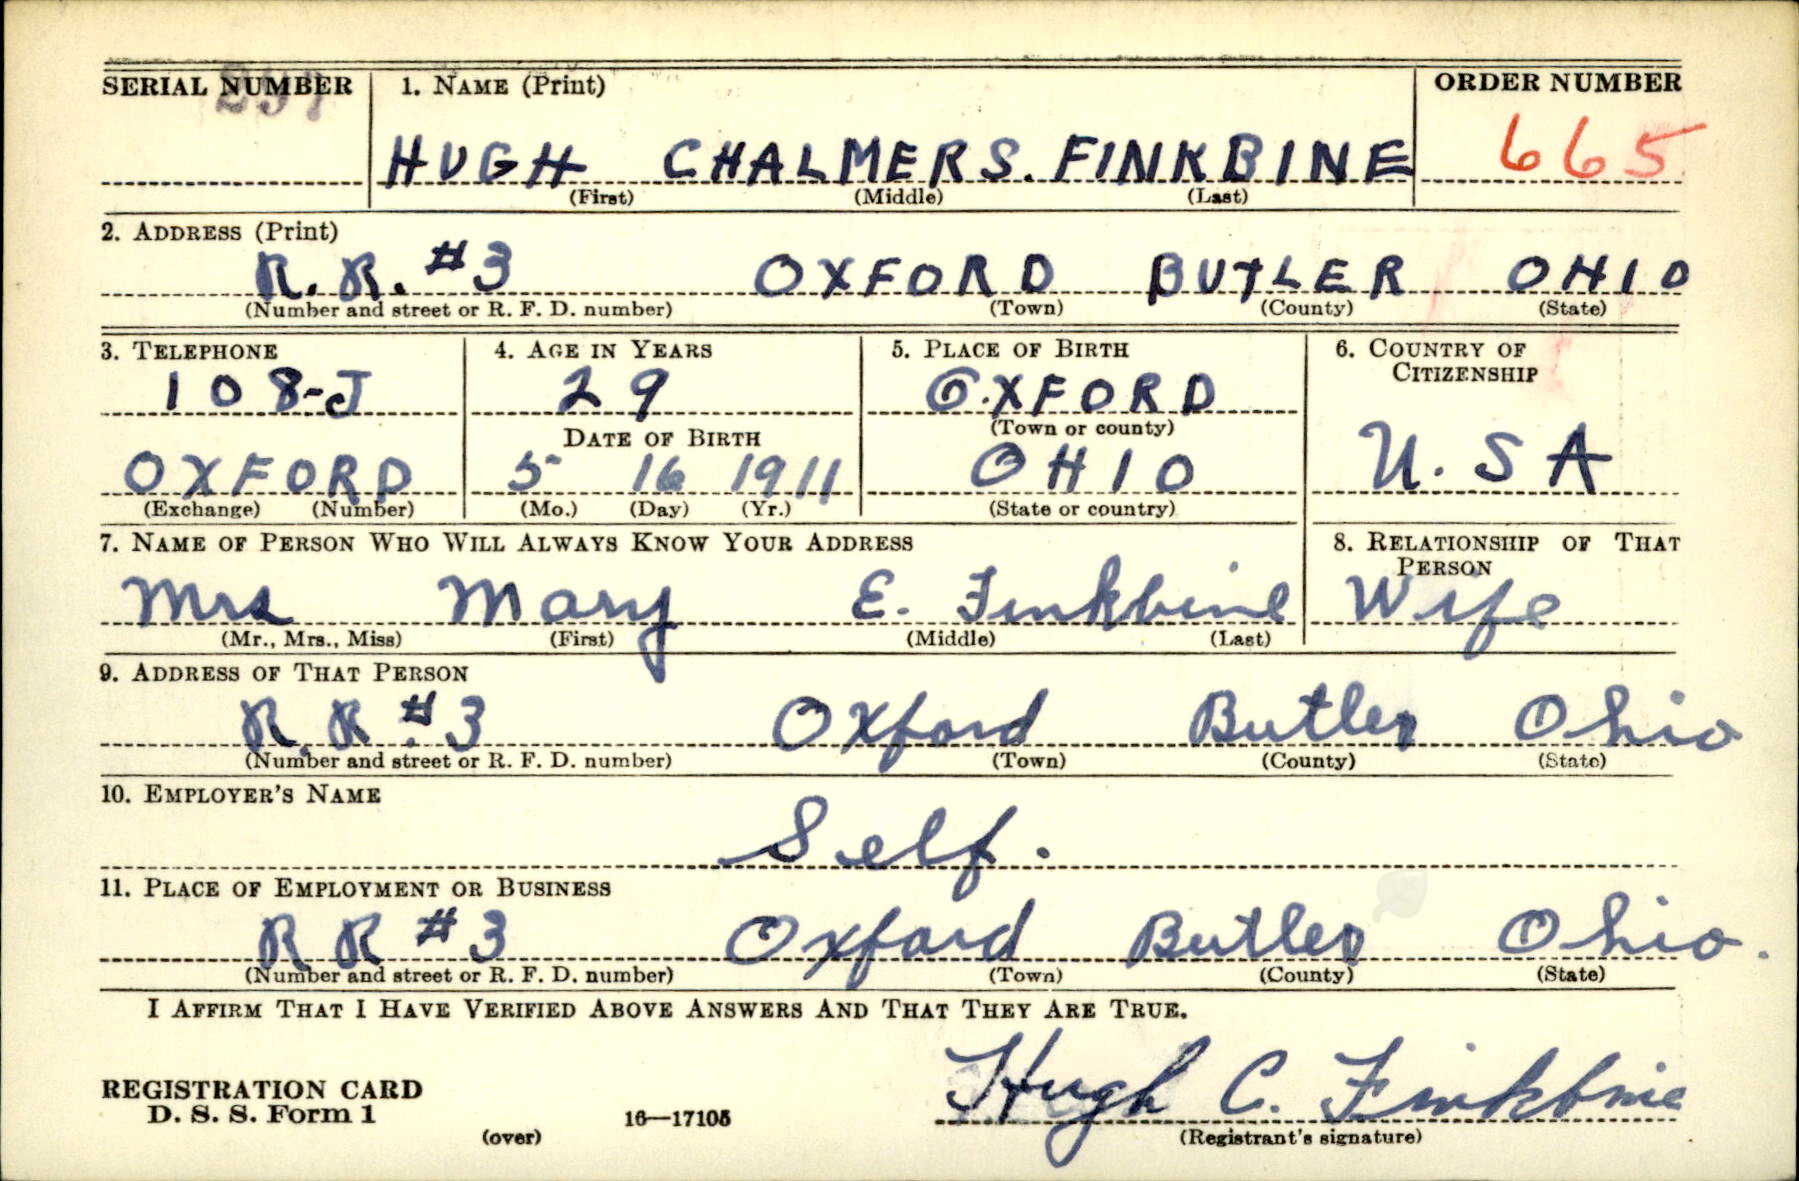 SERIAL NUMBER 1. NAME (Print) ORDER NUMBER
257
HUGH CHALMERS. FINKBINE 665
(First) (Middle) (Last)
2. ADDRESS (Print)
R. R. #3 OXFORD BUTLER OHIO
(Number and street or R. F. D. number) (Town) (County) (State)
3. TELEPHONE 4. AGE IN YEARS 5. PLACE OF BIRTH 6. COUNTRY OF CITIZENSHIP
108-J 29 OXFORD
(Town or county)
DATE OF BIRTH
OXFORD 5 16 1911 OHIO U. S A
(Exchange) (Number) (Mo.) (Day) (Yr.) (State or country)
7. NAME OF PERSON WHO WILL ALWAYS KNOW YOUR ADDRESS 8. RELATIONSHIP OF THAT PERSON
Mrs Mary E. Finkbine Wife
(Mr., Mrs., Miss) (First) (Middle) (Last)
9. ADDRESS OF THAT PERSON
R. R. #3 Oxford Butler Ohio
(Number and street or R. F. D. number) (Town) (County) (State)
10. EMPLOYER'S NAME
Self.
11. PLACE OF EMPLOYMENT OR BUSINESS
R R #3 Oxford Butler Ohio.
(Number and street or R. F. D. number) (Town) (County) (State)
I AFFIRM THAT I HAVE VERIFIED ABOVE ANSWERS AND THAT THEY ARE TRUE.
Hugh C. Finkbine
REGISTRATION CARD
D. S. S. Form 1 16—17105
(over) (Registrant's signature)